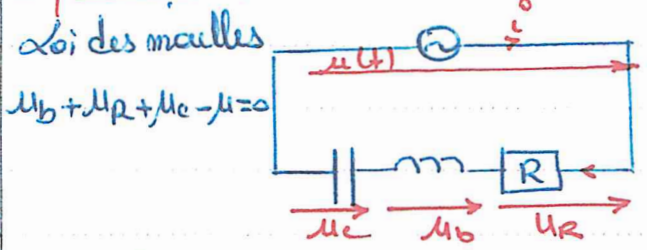 Loi des mailles
u_b + u_R + u_c - u = 0
i
u(t)
R
u_c u_b u_R